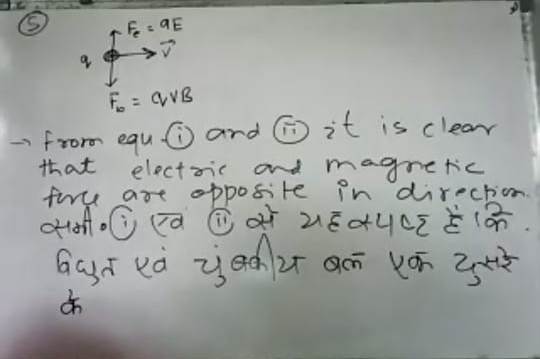 5
Fe = qE
q
V
Fb = qVB
→ from equ. i and ii it is clear
that electric and magnetic
force are opposite in direction.
समी. i एवं ii से यह स्पष्ट है कि
विद्युत एवं चुंबकीय बल एक दुसरे
के